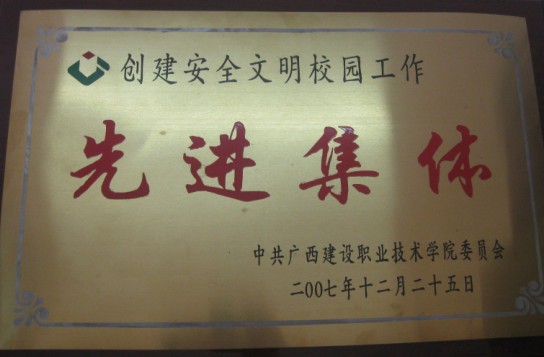 创建安全文明校园工作
先进集体
中共广西建设职业技术学院委员会
二00七年十二月二十五日